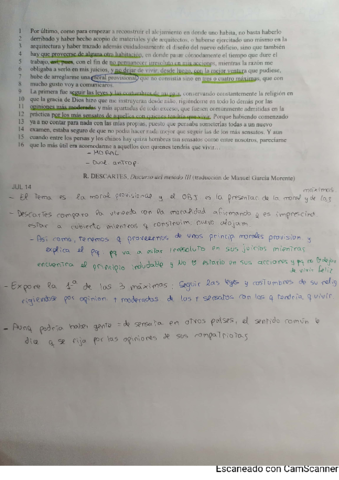 1 Por último, como para empezar a reconstruir el alojamiento en donde uno habita, no basta haberlo
2 derribado y haber hecho acopio de materiales y de arquitectos, o haberse ejercitado uno mismo en la
3 arquitectura y haber trazado además cuidadosamente el diseño del nuevo edificio, sino que también
4 hay que proveerse de alguna otra habitación, en donde pasar cómodamente el tiempo que dure el
5 trabajo, así, pues, con el fin de no permanecer irresoluto en mis acciones, mientras la razón me
6 obligaba a serlo en mis juicios, y no dejar de vivir desde luego, con la mejor ventura que pudiese,
7 hube de arreglarme una moral provisional, que no consistía sino en tres o cuatro máximas, que con
8 mucho gusto voy a comunicaros.
9 La primera fue seguir las leyes y las costumbres de mi país, conservando constantemente la religión en
10 que la gracia de Dios hizo que me instruyeran desde niño, rigiéndome en todo lo demás por las
11 opiniones más moderadas y más apartadas de todo exceso, que fuesen comúnmente admitidas en la
12 práctica por los más sensatos de aquellos con quienes tendría que vivir. Porque habiendo comenzado
13 ya a no contar para nada con las mías propias, puesto que pensaba someterlas todas a un nuevo
14 examen, estaba seguro de que no podía hacer nada mejor que seguir las de los más sensatos. Y aun
15 cuando entre los persas y los chinos hay quizá hombres tan sensatos como entre nosotros, parecíame
16 que lo más útil era acomodarme a aquellos con quienes tendría que vivir...
- MORAL
- Dual. antrop.
R. DESCARTES, Discurso del método III (traducción de Manuel García Morente)
JUL 14
máximas
- El tema es la moral provisional y el Obj es la presentac de la moral y de las
- Descartes compara la vivienda con la moralidad afirmando q es imprescin
- Así como, tenemos q proveernos de unos princip morales provision. y
explica el pq va a estar irresoluto en sus juicios mientras
encuentra el principio indudable y no o estarlo en sus acciones
de vivir feliz
- Expone la 1ª de las 3 máximas. Seguir las leyes y costumbres de su relig
rigiéndose por opinion + moderadas de los + sensatos con los q tendría q vivir.
- Aunq podría haber gente + de sensata en otros países, el sentido común le
dice q se rija por las opiniones de sus compatriotas
Escaneado con CamScanner